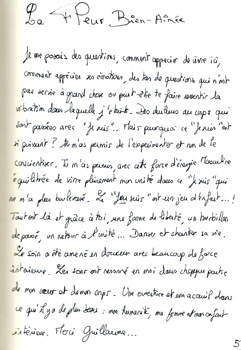 La + Peur Bien-Aimée
Je me posais des questions, comment apprécier de vivre ici,
comment apprécier ses émotions, des tas de questions qui n'ont
pas servie à grand chose ou peut être te faire ressentir la
vibration dans laquelle j'étais. Des douleurs au corps qui
sont parlées avec "Je suis".. Mais pourquoi ce "Je suis" est
si puissant ? Tu m'as permis de l'expérimenter et non de le
conscientiser. Tu m'as permis, avec cette force d'énergie Masculine
équilibrée de vivre pleinement mon unité dans ce "Je suis" qui
ne m'a plus bouleversé. Le "Je suis" est un jeu d'enfant...!
Tout est là et grâce à toi, une forme de liberté, un tourbillon
de pureté, un retour à l'unité... Danser et chanter sa vie.
Le soin a été amené en douceur avec beaucoup de force
intérieure. Les sons ont résonné en moi dans chaque partie
de mon cœur et de mon corps. Une ouverture et un accueil dans
ce qu'il y a de plus beau : mon humanité, ma femme et mon enfant
intérieur. Merci Guillaume...
5